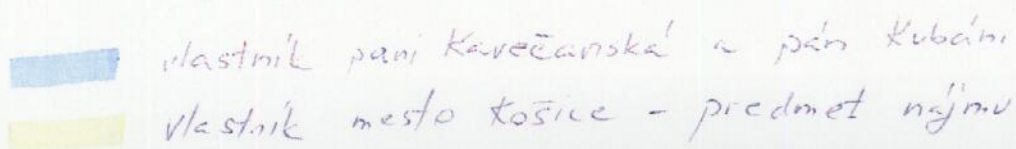 vlastník pani Kavečanská a pán Kubáni
vlastník mesto Košice - predmet nájmu